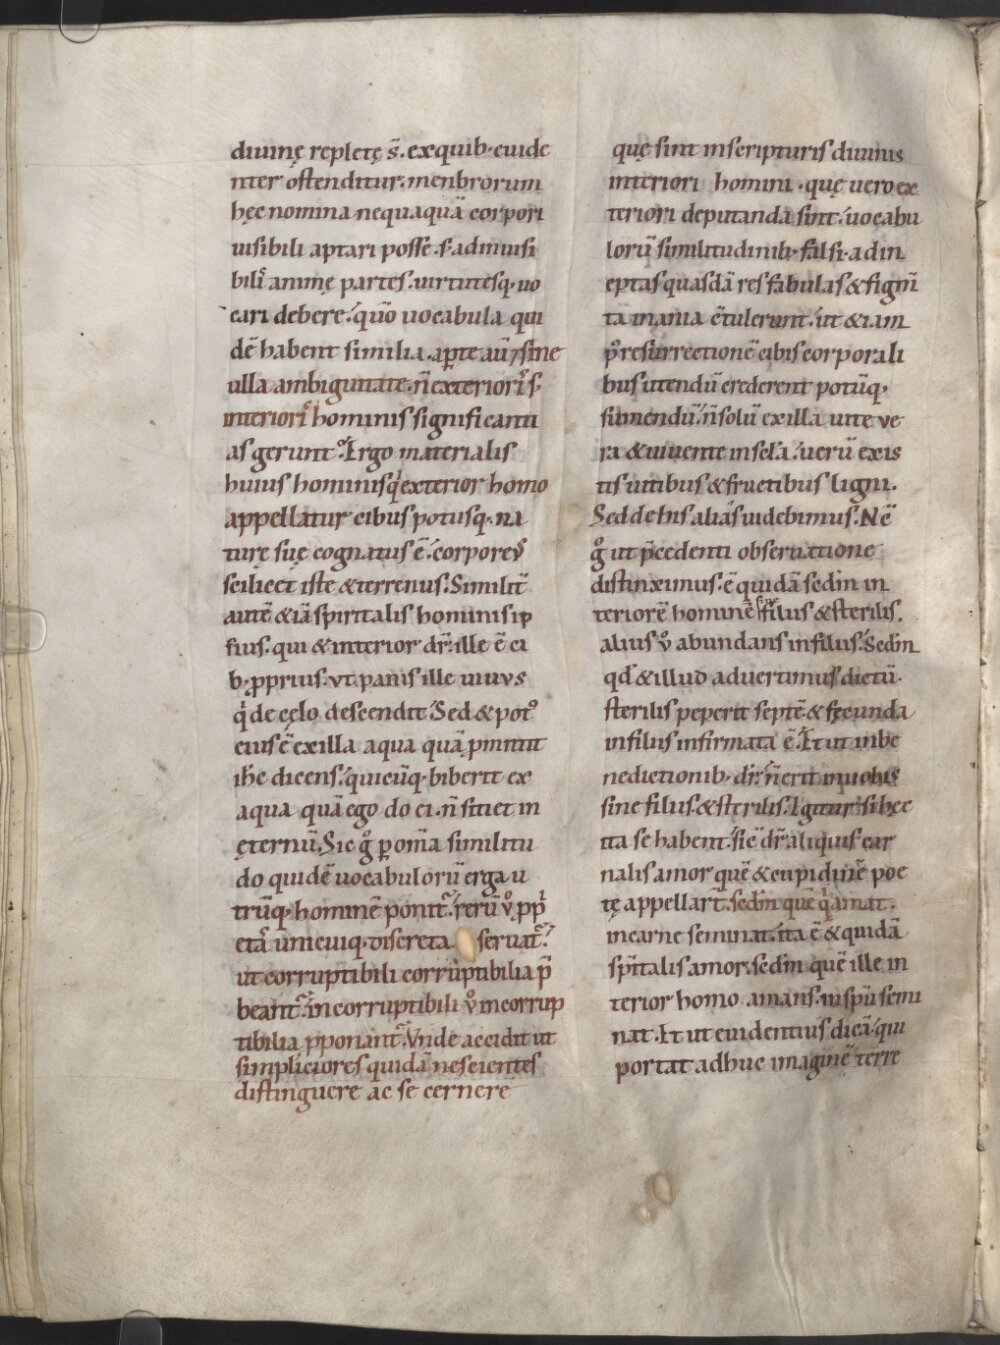 diuinę repletę s̄. ex quib· euide
nter ostenditur. menbrorum
hęc nomina nequaquā corpori
uisibili aptari posse. s; ad inuisi
bilis animę partes. uirtutesq· uo
cari debere. quō uocabula qui
dē habent similia. aperte aū & sine
ulla ambiguitate. n̄ exterioris s;
interioris hominis significanti
as gerunt. Ergo materialis
huius hominis qi exterior homo
appellatur cibus potusq· na
turę suę cognatus ē. corporeus
scilicet iste & terrenus. Similit̄
autē & iā spiritalis hominis ip
sius. qui & interior dr̄. ille ē ci
b; pprius. ut panis ille uiuus
qi de cęlo descendit. Sed & pot9
eius ē ex illa aqua quā pmittit
ih̄c dicens. quicūq· biberit ex
aqua quā ego do ei. n̄ sitiet in
ęternū. Sic g° p om̄a similitu
do quidē uocabulorū erga u
trūq· hominē ponit̄. rerū u° ppi
etas unicuiq· discreta seruat̄.
ut corruptibili corruptibilia p̄
beant̄. incorruptibili u° incorrup
tibilia pponant̄. Vnde accidit ut
simpliciores quidā nescientes
distinguere ac se cernere
quę sint in scripturis diuinis
interiori homini. quę uero ex
teriori deputanda sint. uocabu
lorū similitudinib· falsi. ad in
eptas quasdā res fabulas & figm̄
ta inania ētulerunt. ut & iam
p9 resurrectionē cibis corporali
bus utendū crederent potūq·
sumendū. n̄ solū ex illa uite ue
ra & uiuente in scl̄a. uerū ex is
tis uitibus & fructibus ligni.
Sed de his alias uidebimus. Nē
g° ut p̄cedenti obseruatione
distinximus. ē quidā sedm̄ in
teriorē hominē sn̄ filiis & sterilis.
alius u° abundans in filiis. Sedm̄
qd̄ & illud aduertimus dictū.
sterilis peperit septē & fęcunda
in filiis infirmata ē. Et ut in be
nedictionib· dr̄. n̄ erit in uobis
sine filiis. & sterilis. Igitur si hęc
ita se habent. sic dr̄ aliquis car
nalis amor quē & cupidinē poe
tę appellart̄. sedm̄ quē qi amat.
in carne seminat. ita ē & quidā
sp̄italis amor. sedm̄ quē ille in
terior homo amans. in sp̄u semi
nat. Et ut euidentius dicā. qui
portat adhuc imaginē terre